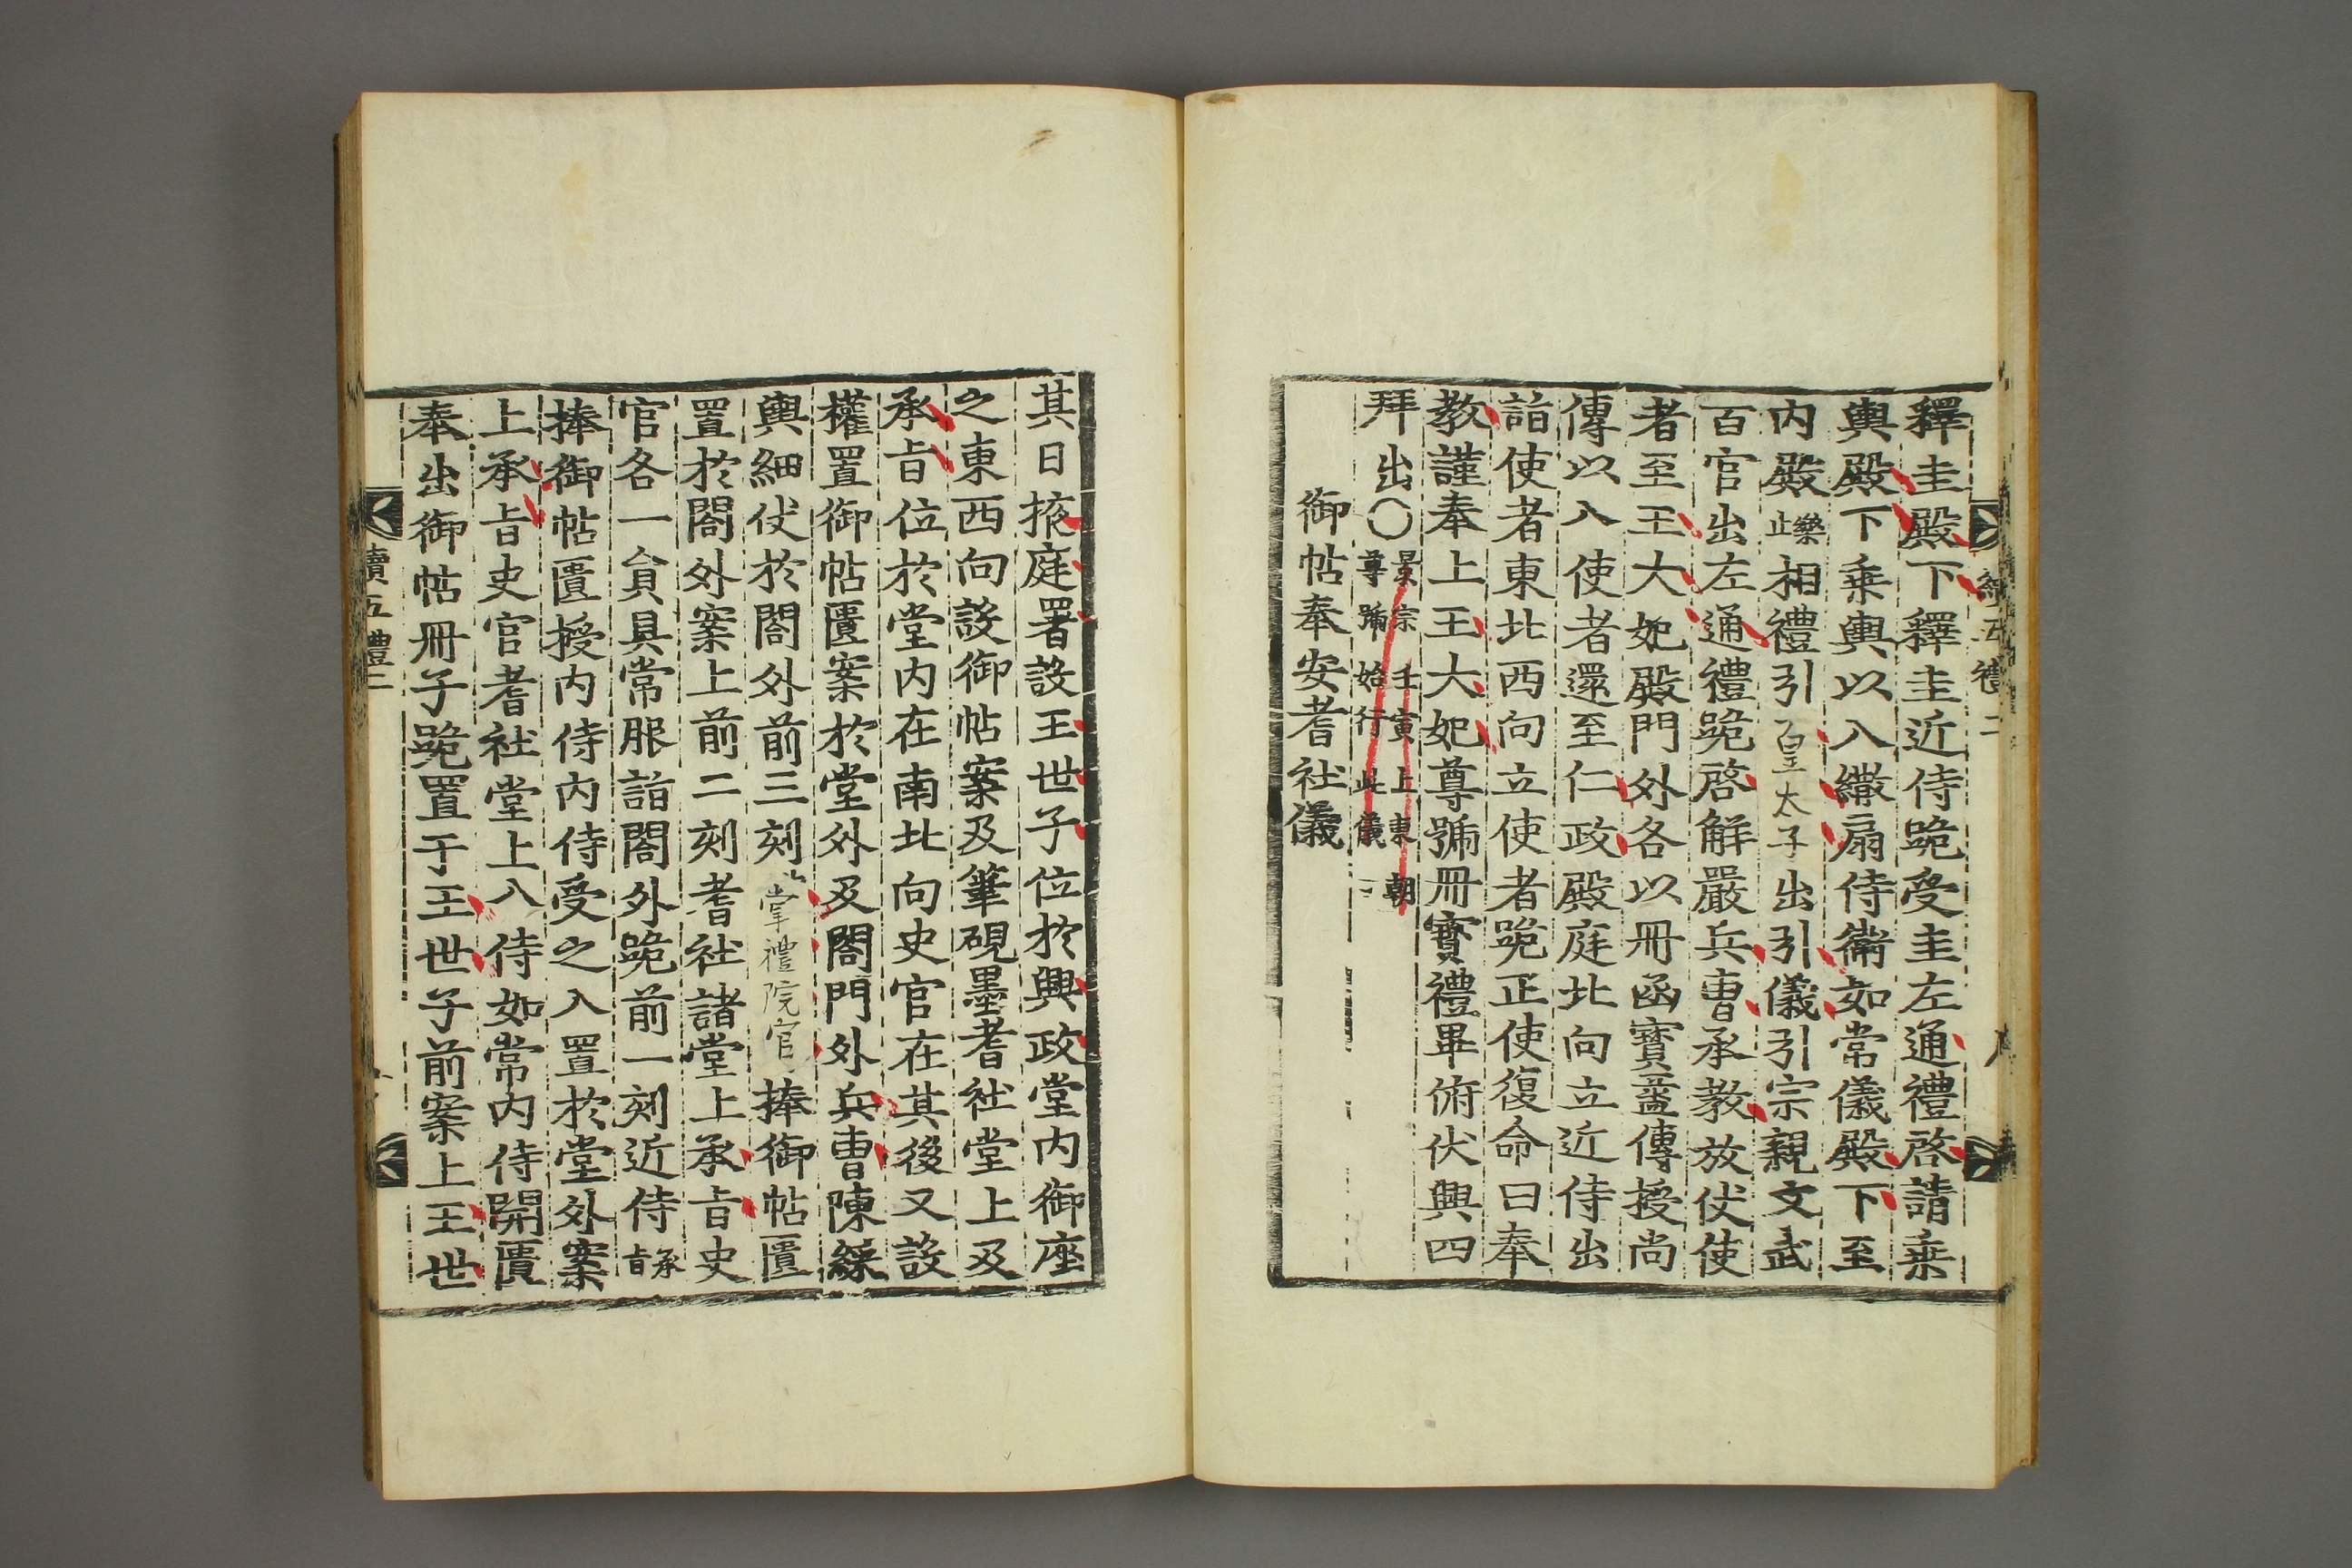 釋圭殿下釋圭近侍跪受圭左通禮啓請乘
輿殿下乘輿以入繖扇侍衛如常儀殿下至
內殿樂止相禮引皇太子出引儀引宗親文武
百官出左通禮跪啓解嚴兵曹承敎放仗使
者至王大妃殿門外各以冊函寶盝傳授尙
傳以入使者還至仁政殿庭北向立近侍出
詣使者東北西向立使者跪正使復命曰奉
敎謹奉上王大妃尊號冊寶禮畢俯伏興四
拜出〇景宗壬寅上東朝
尊號始行此儀
御帖奉安耆社儀
其日掖庭署設王世子位於興政堂內御座
之東西向設御帖案及筆硯墨耆社堂上及
承旨位於堂內在南北向史官在其後又設
權置御帖匱案於堂外及閤門外兵曹陳綵
輿細仗於閤外前三刻掌禮院官捧御帖匱
置於閤外案上前二刻耆社諸堂上承旨史
官各一員具常服詣閤外跪前一刻近侍承旨
捧御帖匱授內侍內侍受之入置於堂外案
上承旨史官耆社堂上入侍如常內侍開匱
奉出御帖冊子跪置于王世子前案上王世
續五禮二